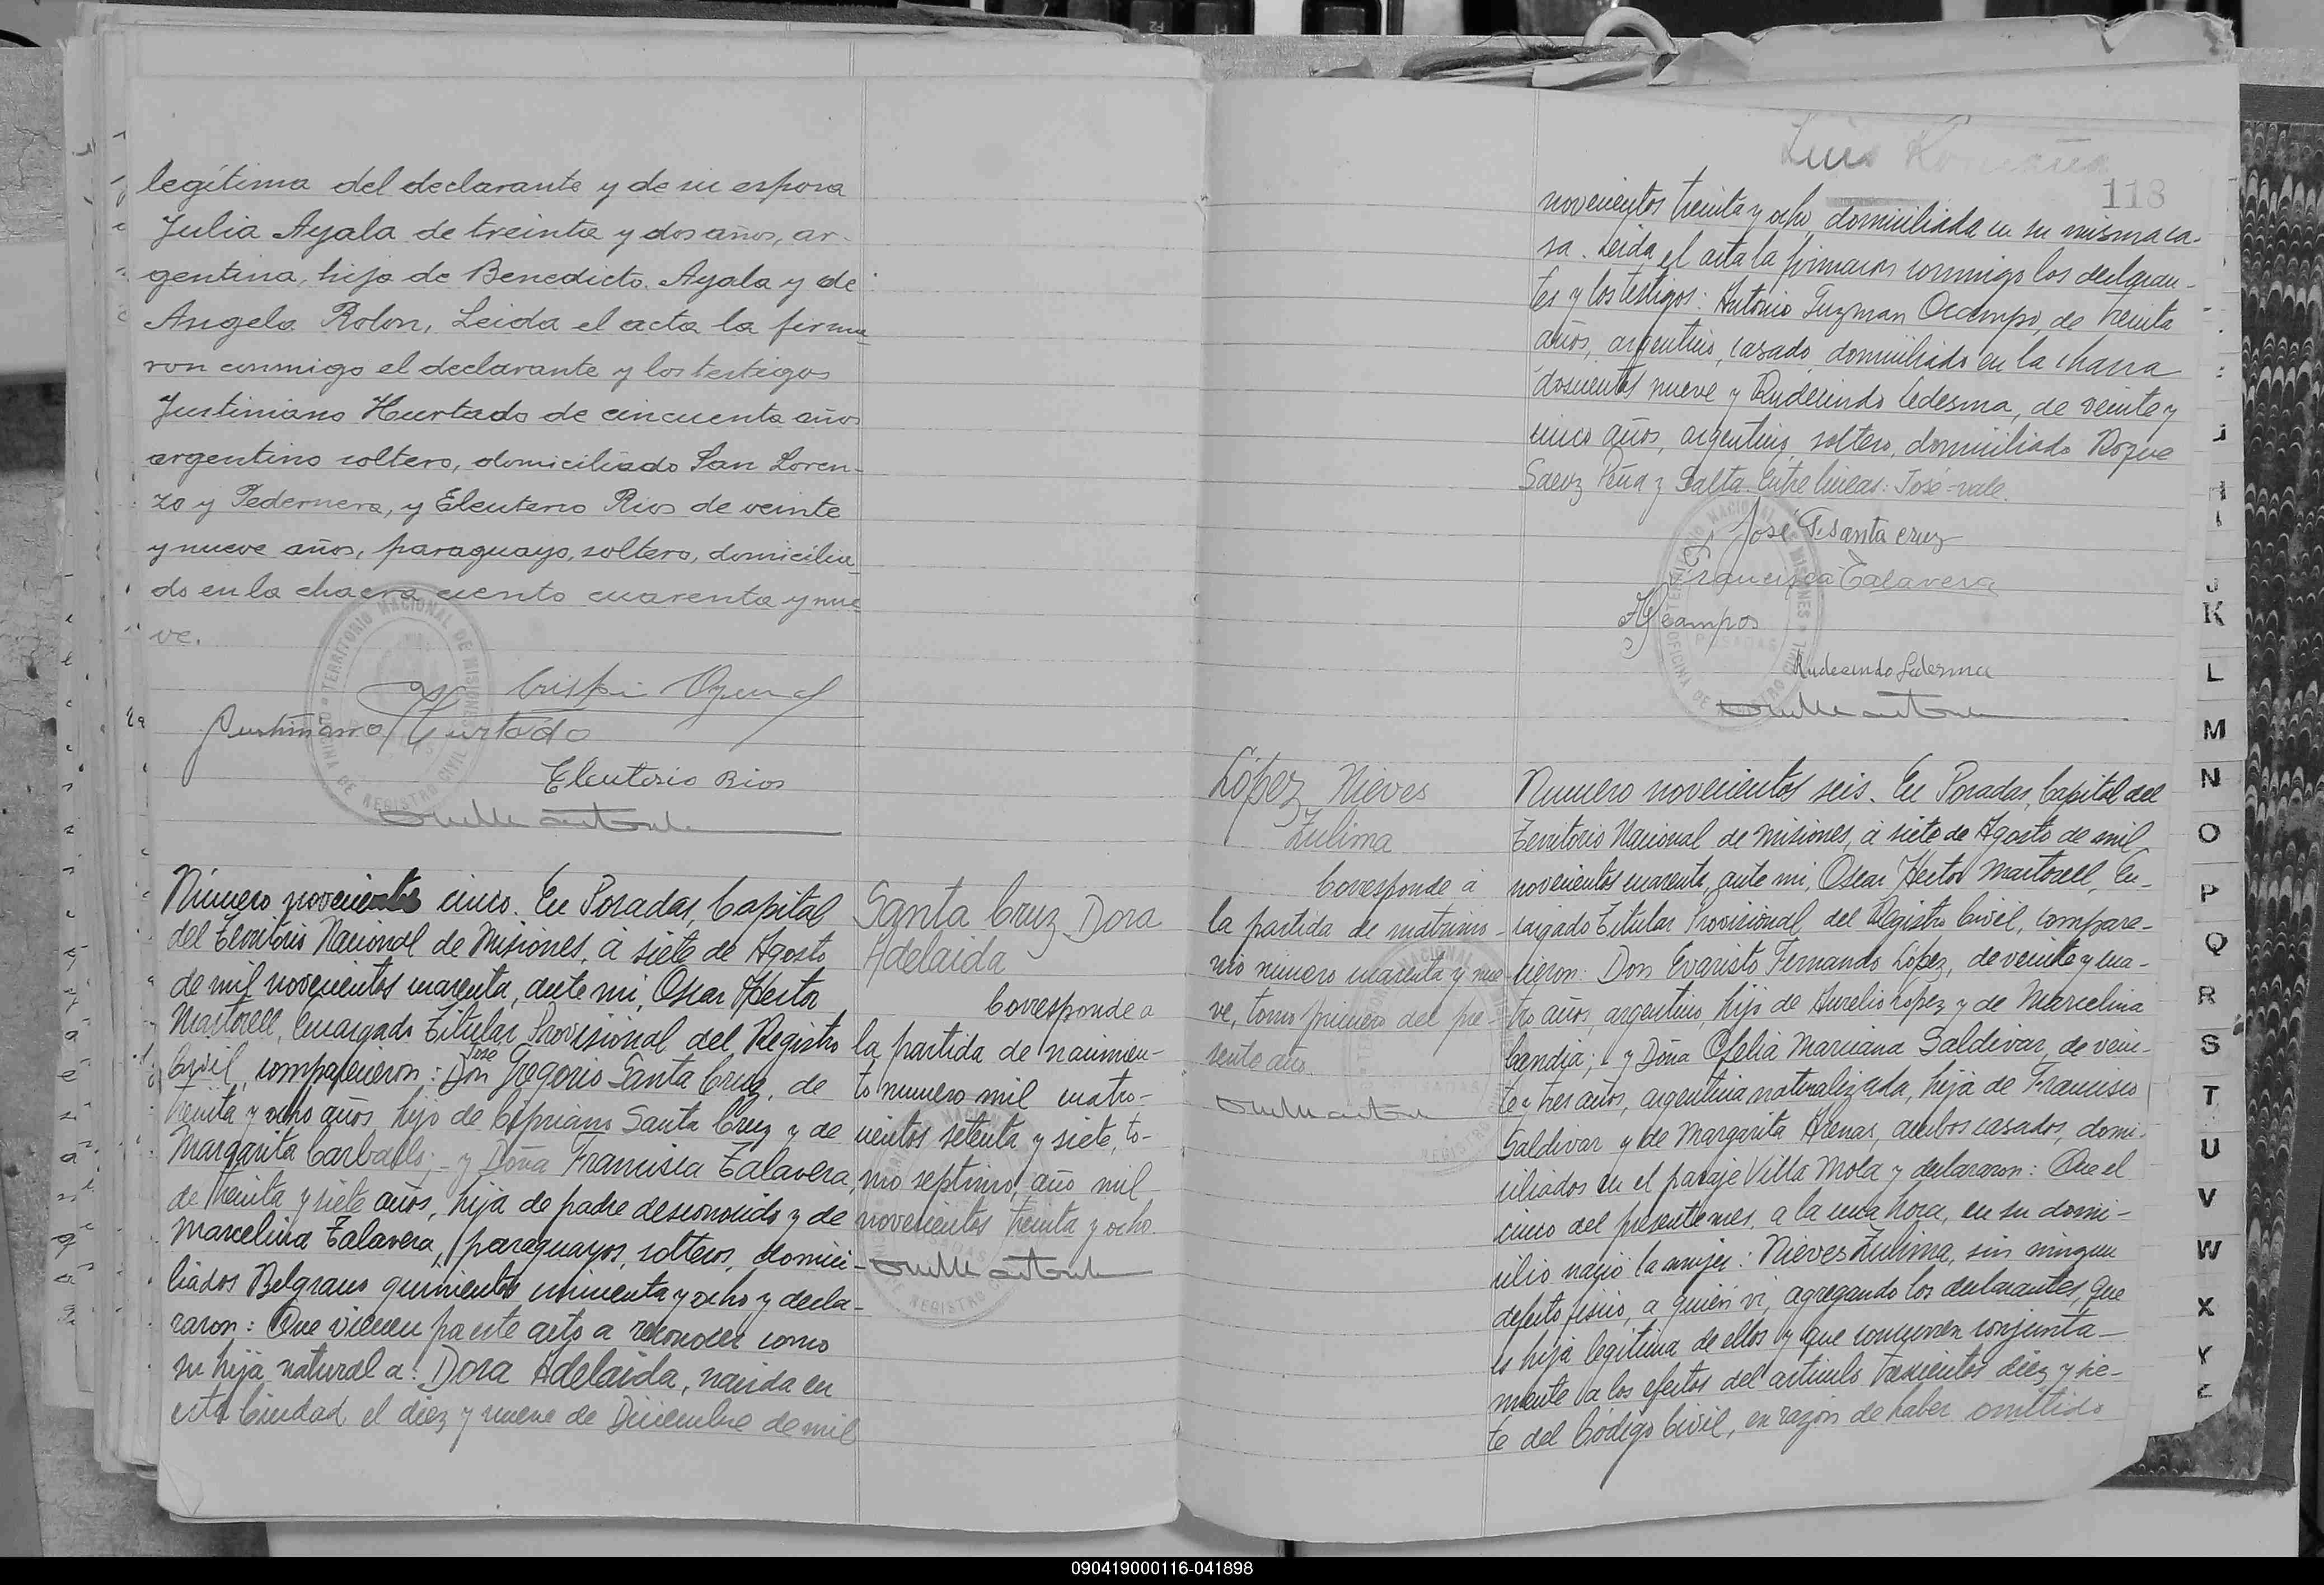 legítima del declarante y de su esposa
Julia Ayala de treinta y dos años, ar-
gentina, hija de Benedicto Ayala y de
Angela Rolon, Leida el acta la firma-
ron conmigo el declarante y los testigos
Justiniano Hurtado de cincuenta años
argentino soltero, domiciliado San Loren-
zo y Pedernera, y Eleuterio Rios de veinte
y nueve años, paraguayo, soltero, domicilia-
do en la chacra ciento cuarenta y nue-
ve.
Justiniano Hurtado
Eleuterio Rios
Número novecientos cinco. En Posadas, Capital
del Territorio Nacional de Misiones, á siete de Agosto
de mil novecientos cuarenta, ante mi, Oscar Hector
Martorell, Encargado Titular Provisional del Registro
José
Civil, comparecieron: Don Gregorio Santa Cruz, de
treinta y ocho años, hijo de Cipriano Santa Cruz y de
Margarita Carballo; y Doña Francisca Talavera,
de treinta y siete años, hija de padre desconocido y de
Marcelina Talavera, paraguayos, solteros, domici-
liados Belgrano quinientos cincuenta y ocho y decla-
raron: Que vienen por este acto a reconocer como
su hija natural a: Dora Adelaida, nacida en
esta Ciudad el diez y nueve de Diciembre de mil
Santa Cruz Dora
Adelaida
Corresponde a
la partida de nacimien-
to numero mil cuatro-
cientos setenta y siete, to-
mo septimo, año mil
novecientos treinta y ocho.
118
novecientos treinta y ocho, domiciliada en su misma ca-
sa. Leida el acta la firmaron conmigo los declaran-
tes y los testigos: Antonio Guzman Ocampo, de treinta
años, argentino, casado, domiciliado en la chacra
doscientos nueve y Rudecindo Ledesma, de veinte y
cinco años, argentino, soltero, domiciliado Roque
Saenz Peña y Salta. Entre lineas: José-vale.
José G. Santa Cruz
Francisca Talavera
AGocampos
Rudecindo Ledesma
López Nieves
Zulima
Corresponde á
la partida de matrimo-
nio numero cuarenta y nue-
ve, tomo primero del pre-
sente año.
Numero novecientos seis. En Posadas, Capital del
Territorio Nacional de Misiones, á siete de Agosto de mil
novecientos cuarenta, ante mi, Oscar Hector Martorell, En-
cargado Titular Provisional del Registro Civil, compare-
cieron: Don Evaristo Fernando López, de veinte y cua-
tro años, argentino, hijo de Aurelio Lopez y de Marcelina
Candia; y Doña Ofelia Mariana Saldivar, de vein-
te y tres años, argentina naturalizada, hija de Francisco
Saldivar y de Margarita Arenas, ambos casados, domi-
ciliados en el paraje Villa Mola y declararon: Que el
cinco del presente mes, a la una hora, en su domi-
cilio nació la mujer: Nieves Zulima, sin ningun
defecto fisico, a quien vi, agregando los declarantes, que
es hija legítima de ellos y que concurren conjunta-
mente a los efectos del articulo trescientos diez y sie-
te del Código Civil, en razón de haber omitido
J
K
L
M
N
O
P
Q
R
S
T
U
V
W
X
Y
Z
090419000116-041898